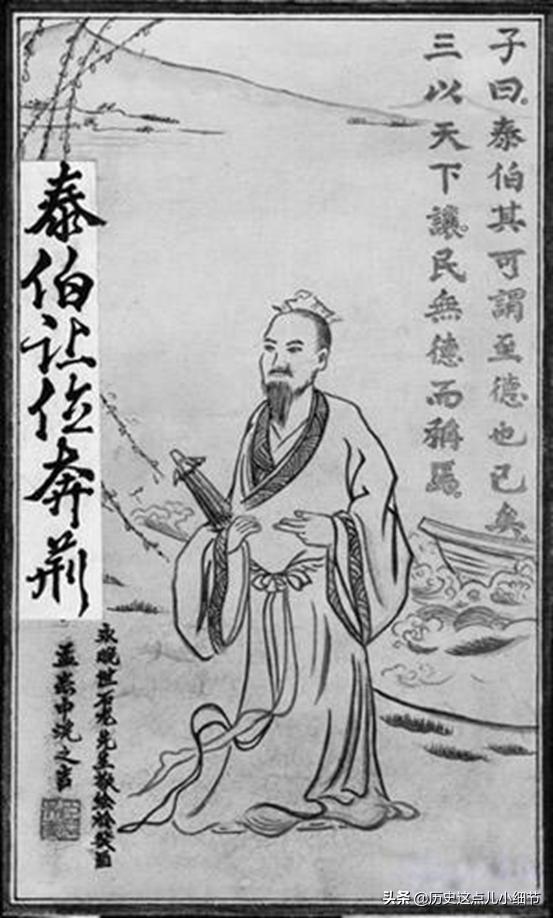 子曰。泰伯其可謂至德也已矣
三以天下讓。民無德而稱焉。
泰伯让位奔荆
先生敬繪
中浣之吉
头条 @历史这点儿小细节